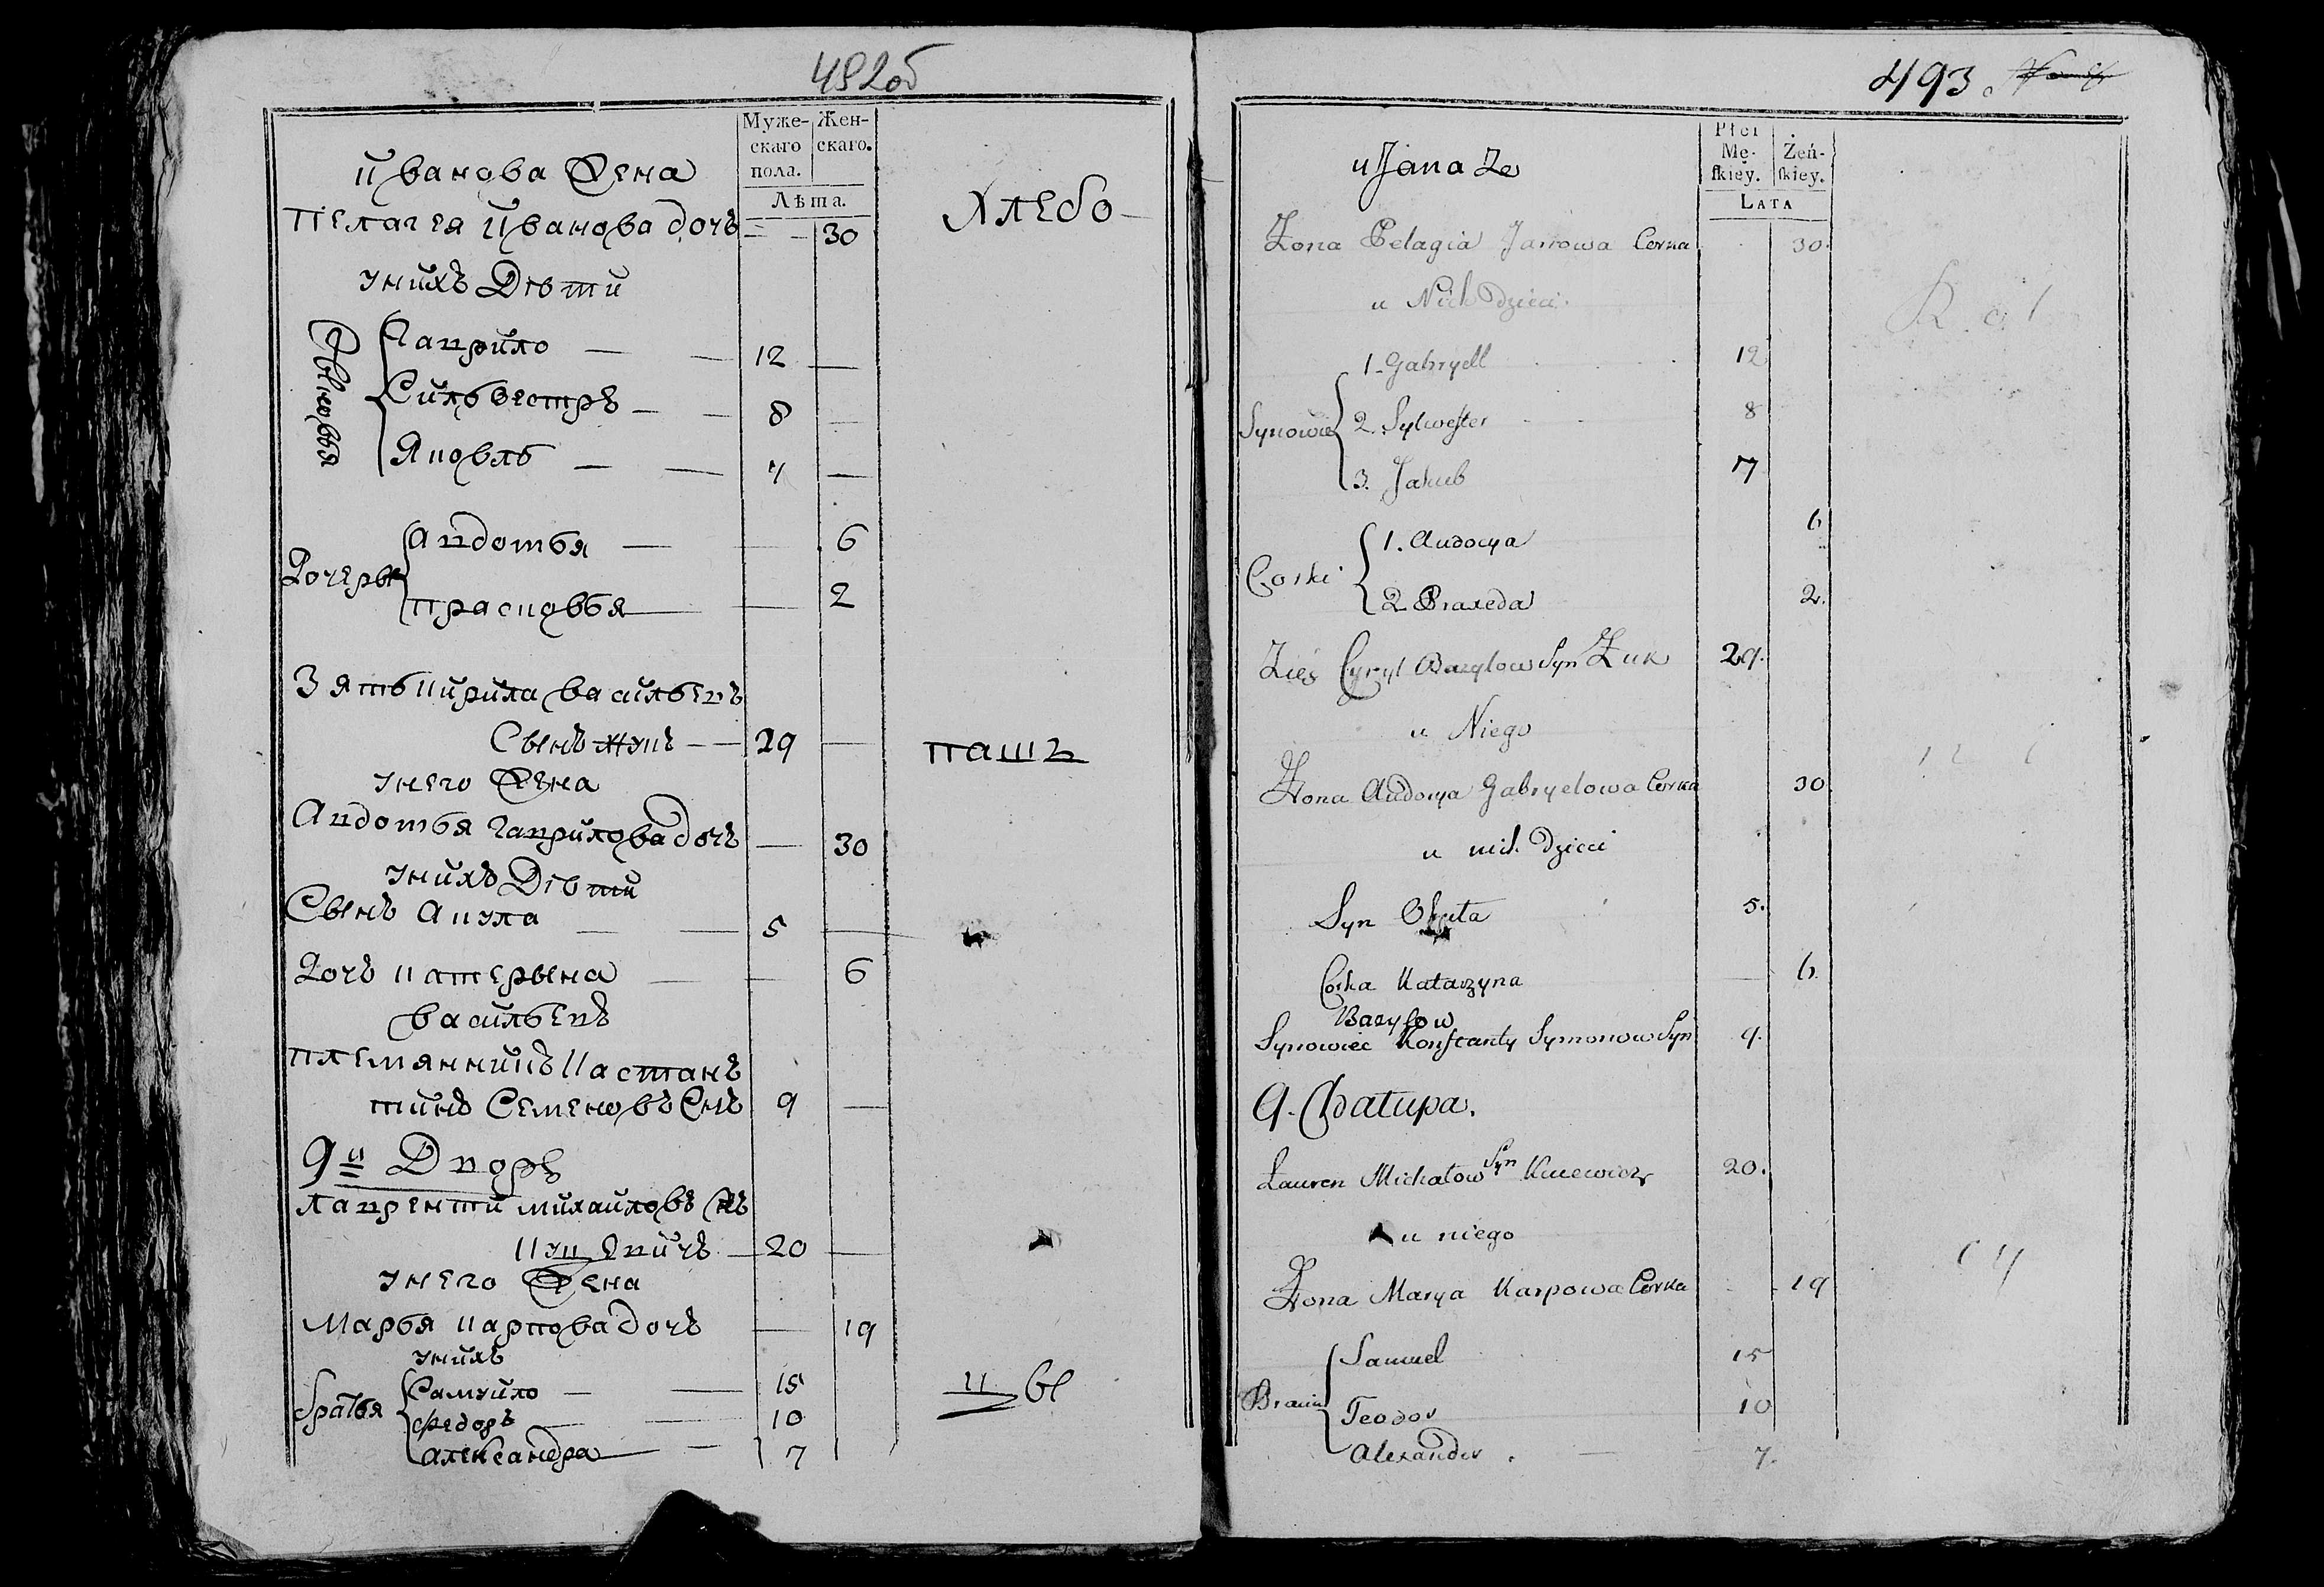 492об
Муже- Жен-
скаго скаго.
пола.
Лѣта.
Иванова Жена
Пелагея Иванова дочъ 30
Хлебо-
унихъ Дѣти
Сыновья
Гаврило — — 12 —
Сильвестръ — — 8 —
Яковль — — 7 —
Дочеры
Авдотья — — 6
Прасковья — 2
Зять Кирила Васильевъ
Сынъ Жукъ — — 29 —
пашъ
унего Жена
Авдотья Гаврилова дочъ — 30
унихъ Дѣти
Сынъ Акула — — 5 —
Дочъ Катерына — — 6
Васильевъ
племянникъ Констанъ
тинъ Семеновъ Снъ 9 —
9й Дворъ
Лаврентий Михайловъ Снъ
Куцевичъ — 20 —
унего Жена
Марья Карпова дочъ — 19
унихъ
братья
Самуйло — — 15
Федоръ — — 10
Александра — — 7
цы
493.
Płci
Mę- Żeń-
skiey. skiey.
LATA
u Jana Żo
Żona Pelagia Janowa Corka 30.
u Nich Dzieci.
Synowie
1. Gabryell 12
2. Sylwester 8
3. Jakub 7
Corki
1. Audocya 6
2. Praxeda 2.
Zięć Cyryl Bazylow Syn Żuk 29.
u Niego
Żona Audocya Gabryelowa Corka 30
u nich Dzieci
Syn Okuta 5.
Corka Katarzyna — 6.
Bazylow
Synowiec Konstanty Symonow Syn 9.
9. Chatupa.
Lauren Michałow Syn Kucewicz 20.
u niego
Żona Marya Karpowa Corka 19
Bracia
Samuel 15
Teodor 10
Alexander . — 7.